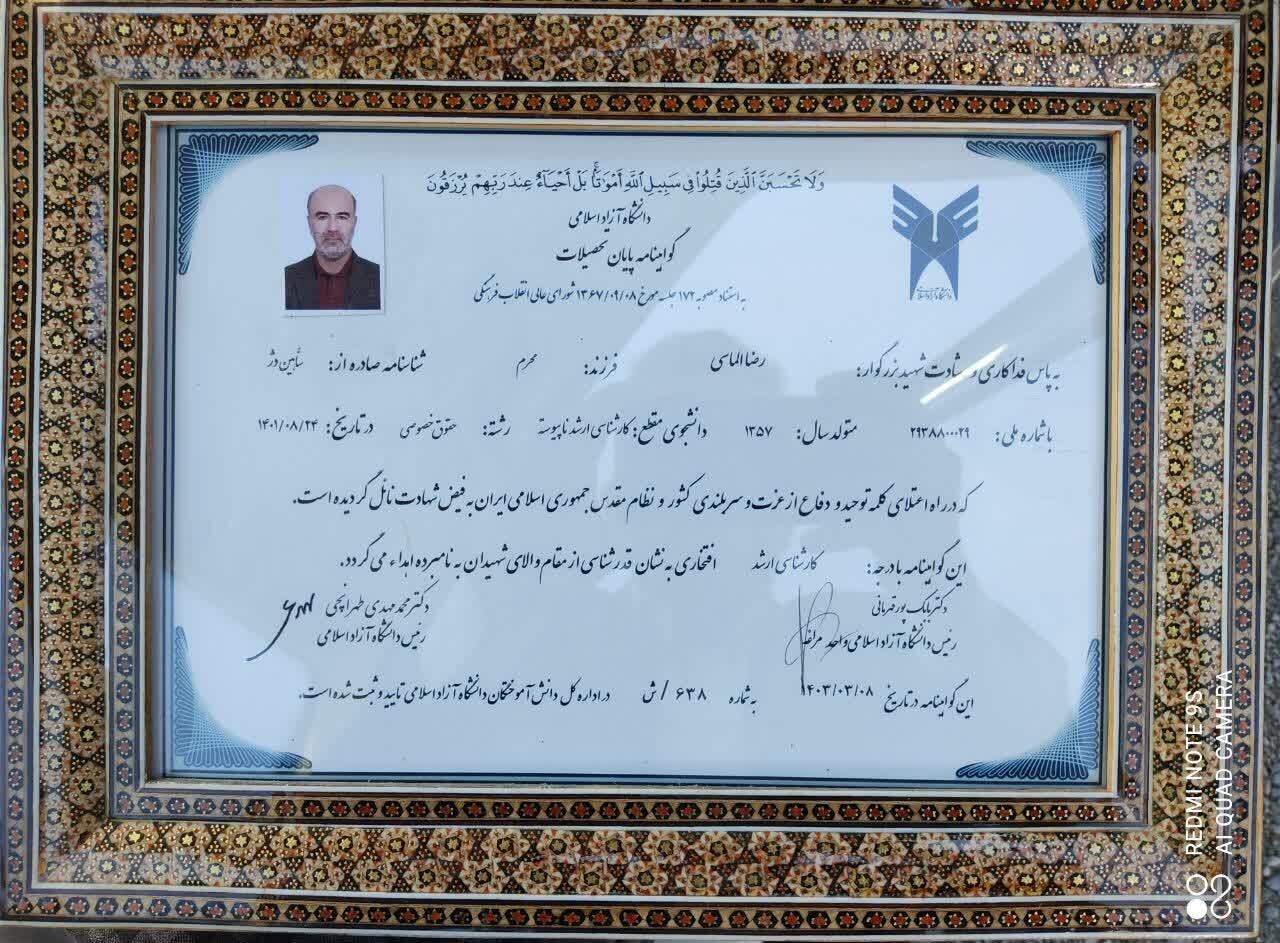 وَلَا تَحْسَبَنَّ ٱلَّذِينَ قُتِلُوا۟ فِى سَبِيلِ ٱللَّهِ أَمْوَٰتًۢا بَلْ أَحْيَآءٌ عِندَ رَبِّهِمْ يُرْزَقُونَ
دانشگاه آزاد اسلامی
گواهینامه پایان تحصیلات
به استناد مصوبه ۱۷۲ جلسه مورخ ۱۳۶۷/۰۹/۰۸ شورای عالی انقلاب فرهنگی
به پاس فداکاری و شهادت شهید بزرگوار: رضا الماسی فرزند: محرم شناسنامه صادره از: شاهین دژ
با شماره ملی: ۲۹۳۸۸۰۰۰۲۹ متولد سال: ۱۳۵۷ دانشجوی مقطع: کارشناسی ارشد ناپیوسته رشته: حقوق خصوصی در تاریخ: ۱۴۰۱/۰۸/۲۴
که در راه اعتلای کلمه توحید و دفاع از عزت و سربلندی کشور و نظام مقدس جمهوری اسلامی ایران به فیض شهادت نائل گردیده است.
این گواهینامه با درجه: کارشناسی ارشد افتخاری به نشان قدرشناسی از مقام والای شهیدان به نامبرده اهداء می گردد.
دکتر بابک پورقهرمانی
رئیس دانشگاه آزاد اسلامی واحد مراغه
دکتر محمد مهدی طهرانچی
رئیس دانشگاه آزاد اسلامی
این گواهینامه در تاریخ ۱۴۰۳/۰۳/۰۸ به شماره ۶۳۸ / ش در اداره کل دانش آموختگان دانشگاه آزاد اسلامی تایید و ثبت شده است.
REDMI NOTE 9S
AI QUAD CAMERA